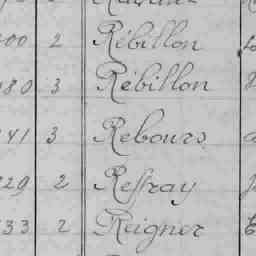 00 2 Rébillon
80 3 Rébillon
41 3 Rebours
29 2 Reffray
33 2 Reigner